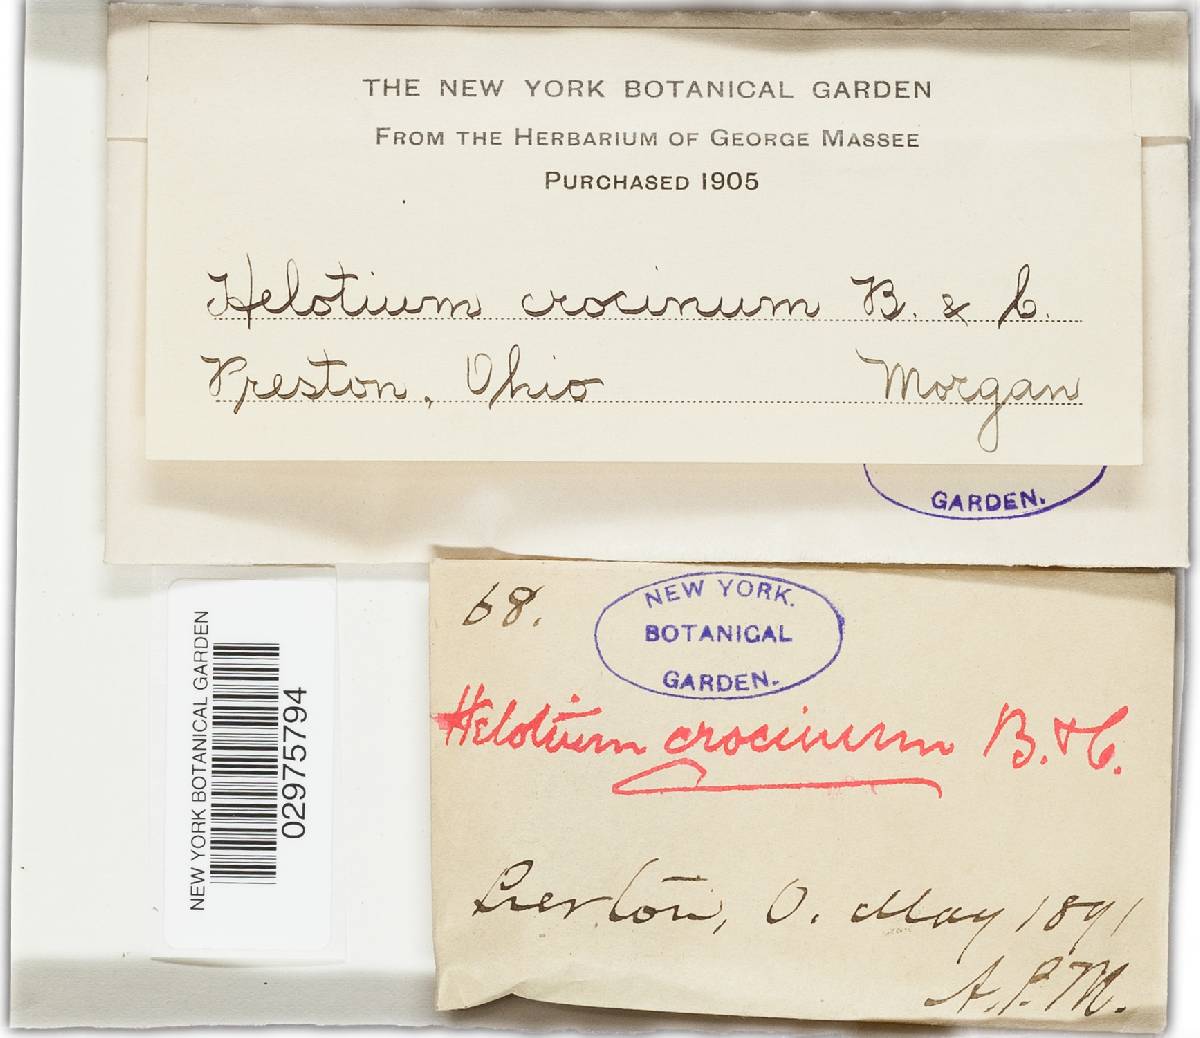 THE NEW YORK BOTANICAL GARDEN
FROM THE HERBARIUM OF GEORGE MASSEE
PURCHASED 1905
Helotium crocinum B. & C.
Preston, Ohio Morgan
GARDEN.
68.
NEW YORK.
BOTANICAL
GARDEN.
Helotium crocinum B. & C.
O. May 1891
A.P.M.
NEW YORK BOTANICAL GARDEN
02975794